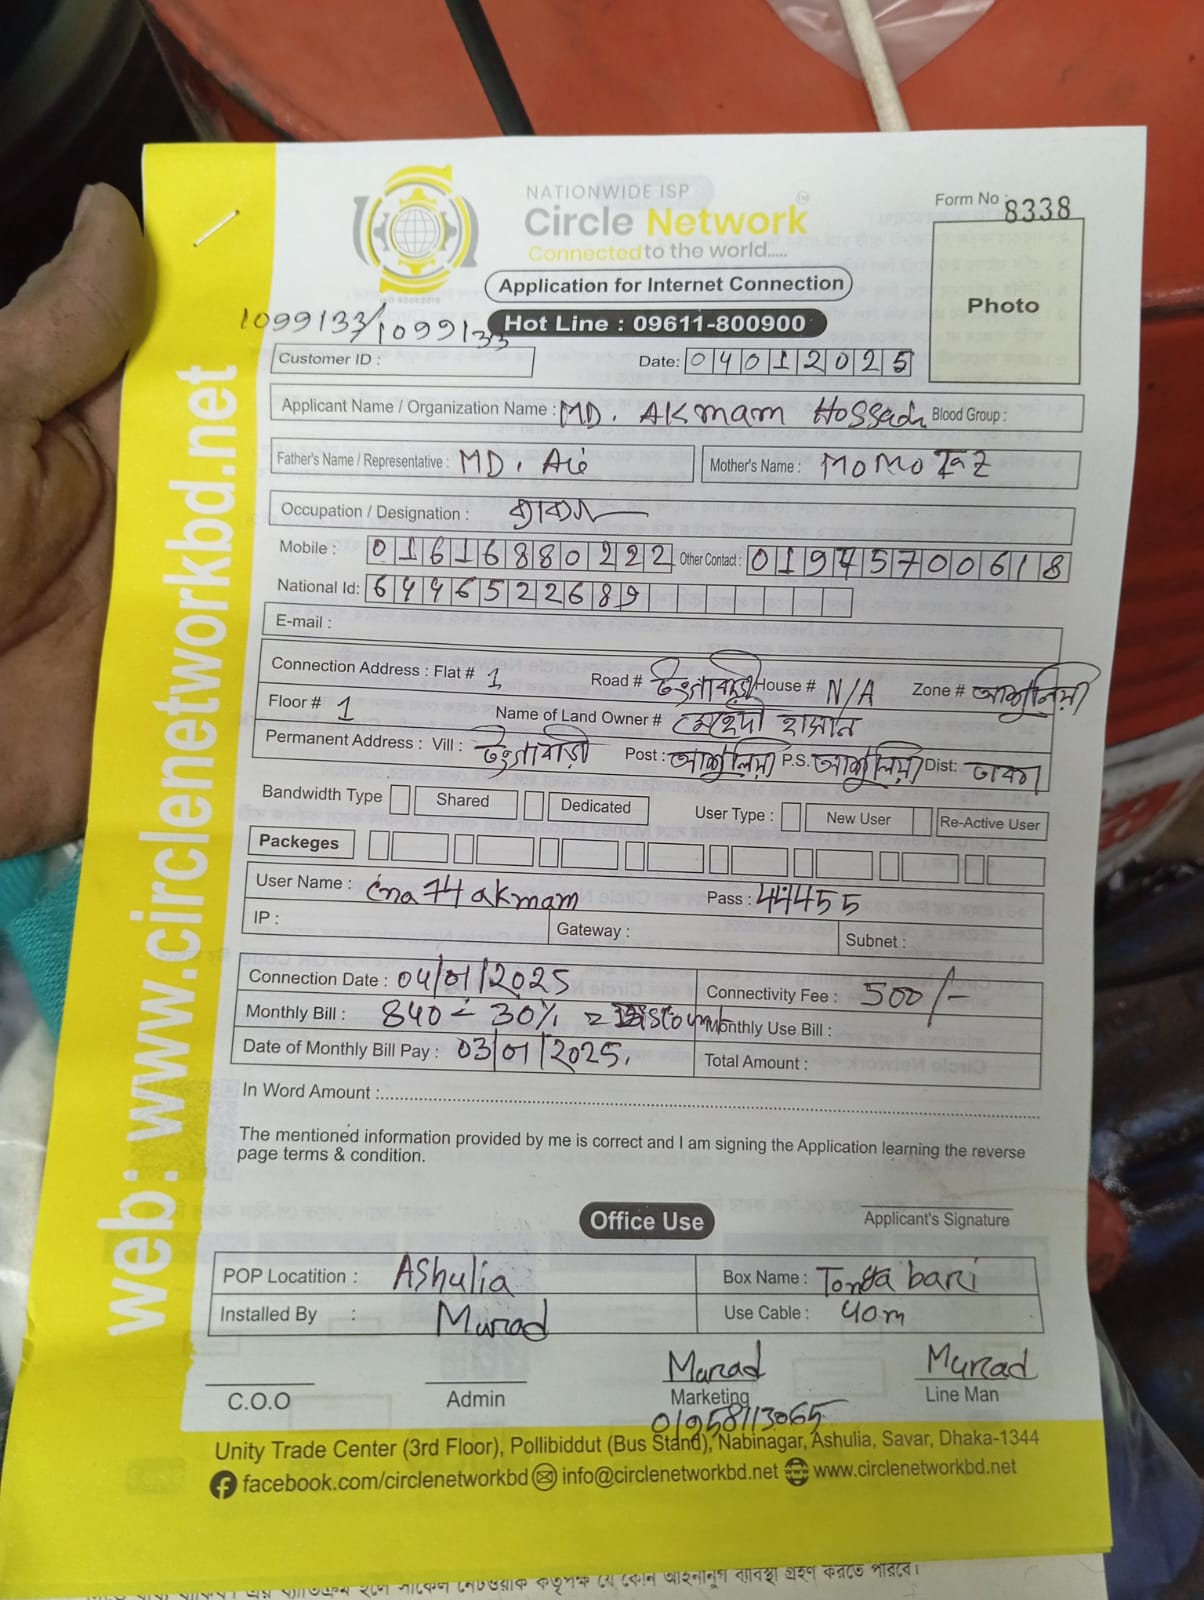 NATIONWIDE ISP
Circle Network
Connected to the world.....
Form No : 8338
Application for Internet Connection
Photo
1099133/1099133
Hot Line : 09611-800900
Customer ID :
Date: 04012025
Applicant Name / Organization Name : MD. AKmam Hossach Blood Group :
Father's Name / Representative : MD. Ali
Mother's Name : MOMOTaZ
Occupation / Designation :
Mobile : 01616880222 Other Contact : 01975700618
National Id: 6446522689
E-mail :
Connection Address : Flat # 1 Road # টংগাবাড়ী House # N/A Zone # আশুলিয়া
Floor # 1 Name of Land Owner # মেহেদী হাসান
Permanent Address : Vill : টংগাবাড়ী Post : আশুলিয়া P.S. আশুলিয়া Dist: ঢাকা
Bandwidth Type Shared Dedicated User Type : New User Re-Active User
Packeges
User Name : cna74akmam Pass : 44455
IP : Gateway : Subnet :
Connection Date : 04/01/2025 Connectivity Fee : 500/-
Monthly Bill : 840 - 30% = Discount Monthly Use Bill :
Date of Monthly Bill Pay : 03/01/2025. Total Amount :
In Word Amount :
The mentioned information provided by me is correct and I am signing the Application learning the reverse
page terms & condition.
Applicant's Signature
Office Use
POP Locatition : AShulia Box Name : Tonga bari
Installed By : Murad Use Cable : 40m
Murad Murad
C.O.O Admin Marketing Line Man
01958113065
Unity Trade Center (3rd Floor), Pollibiddut (Bus Stand), Nabinagar, Ashulia, Savar, Dhaka-1344
facebook.com/circlenetworkbd info@circlenetworkbd.net www.circlenetworkbd.net
web: www.circlenetworkbd.net
কর্তৃপক্ষ যে কোন আইনানুগ ব্যাবস্থা গ্রহণ করতে পারবে।